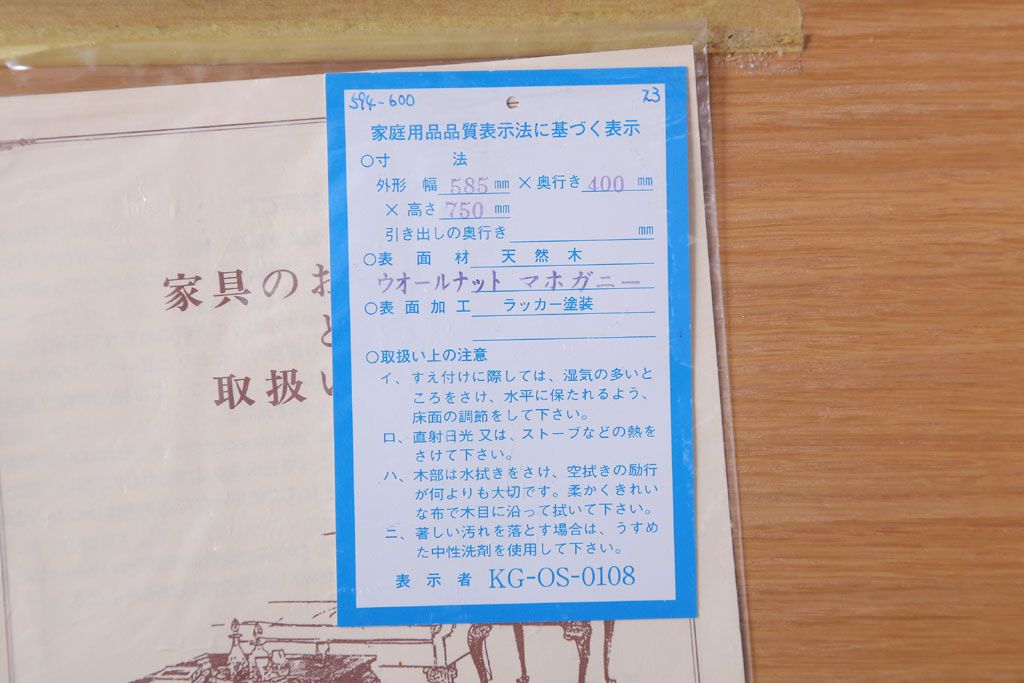 594-600 23
家庭用品品質表示法に基づく表示
○寸 法
外形 幅 585 mm × 奥行き 400 mm
× 高さ 750 mm
引き出しの奥行き mm
○表面材 天然木
ウオールナット マホガニー
○表面加工 ラッカー塗装
○取扱い上の注意
イ、すえ付けに際しては、湿気の多いと
ころをさけ、水平に保たれるよう、
床面の調節をして下さい。
ロ、直射日光又は、ストーブなどの熱を
さけて下さい。
ハ、木部は水拭きをさけ、空拭きの励行
が何よりも大切です。柔かくきれい
な布で木目に沿って拭いて下さい。
ニ、著しい汚れを落とす場合は、うすめ
た中性洗剤を使用して下さい。
表示者 KG-OS-0108
家具のお
と
取扱い